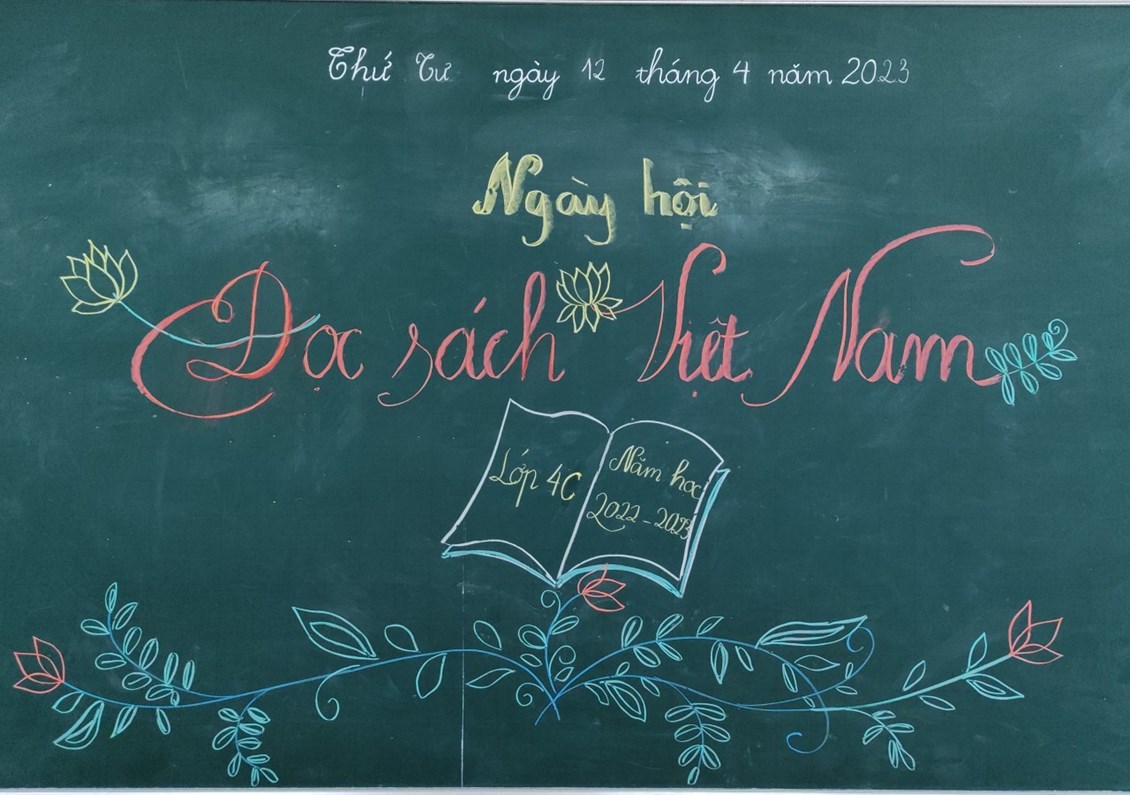 Thứ Tư ngày 12 tháng 4 năm 2023
Ngày hội
Đọc sách Việt Nam
Lớp 4C
Năm học
2022 - 2023